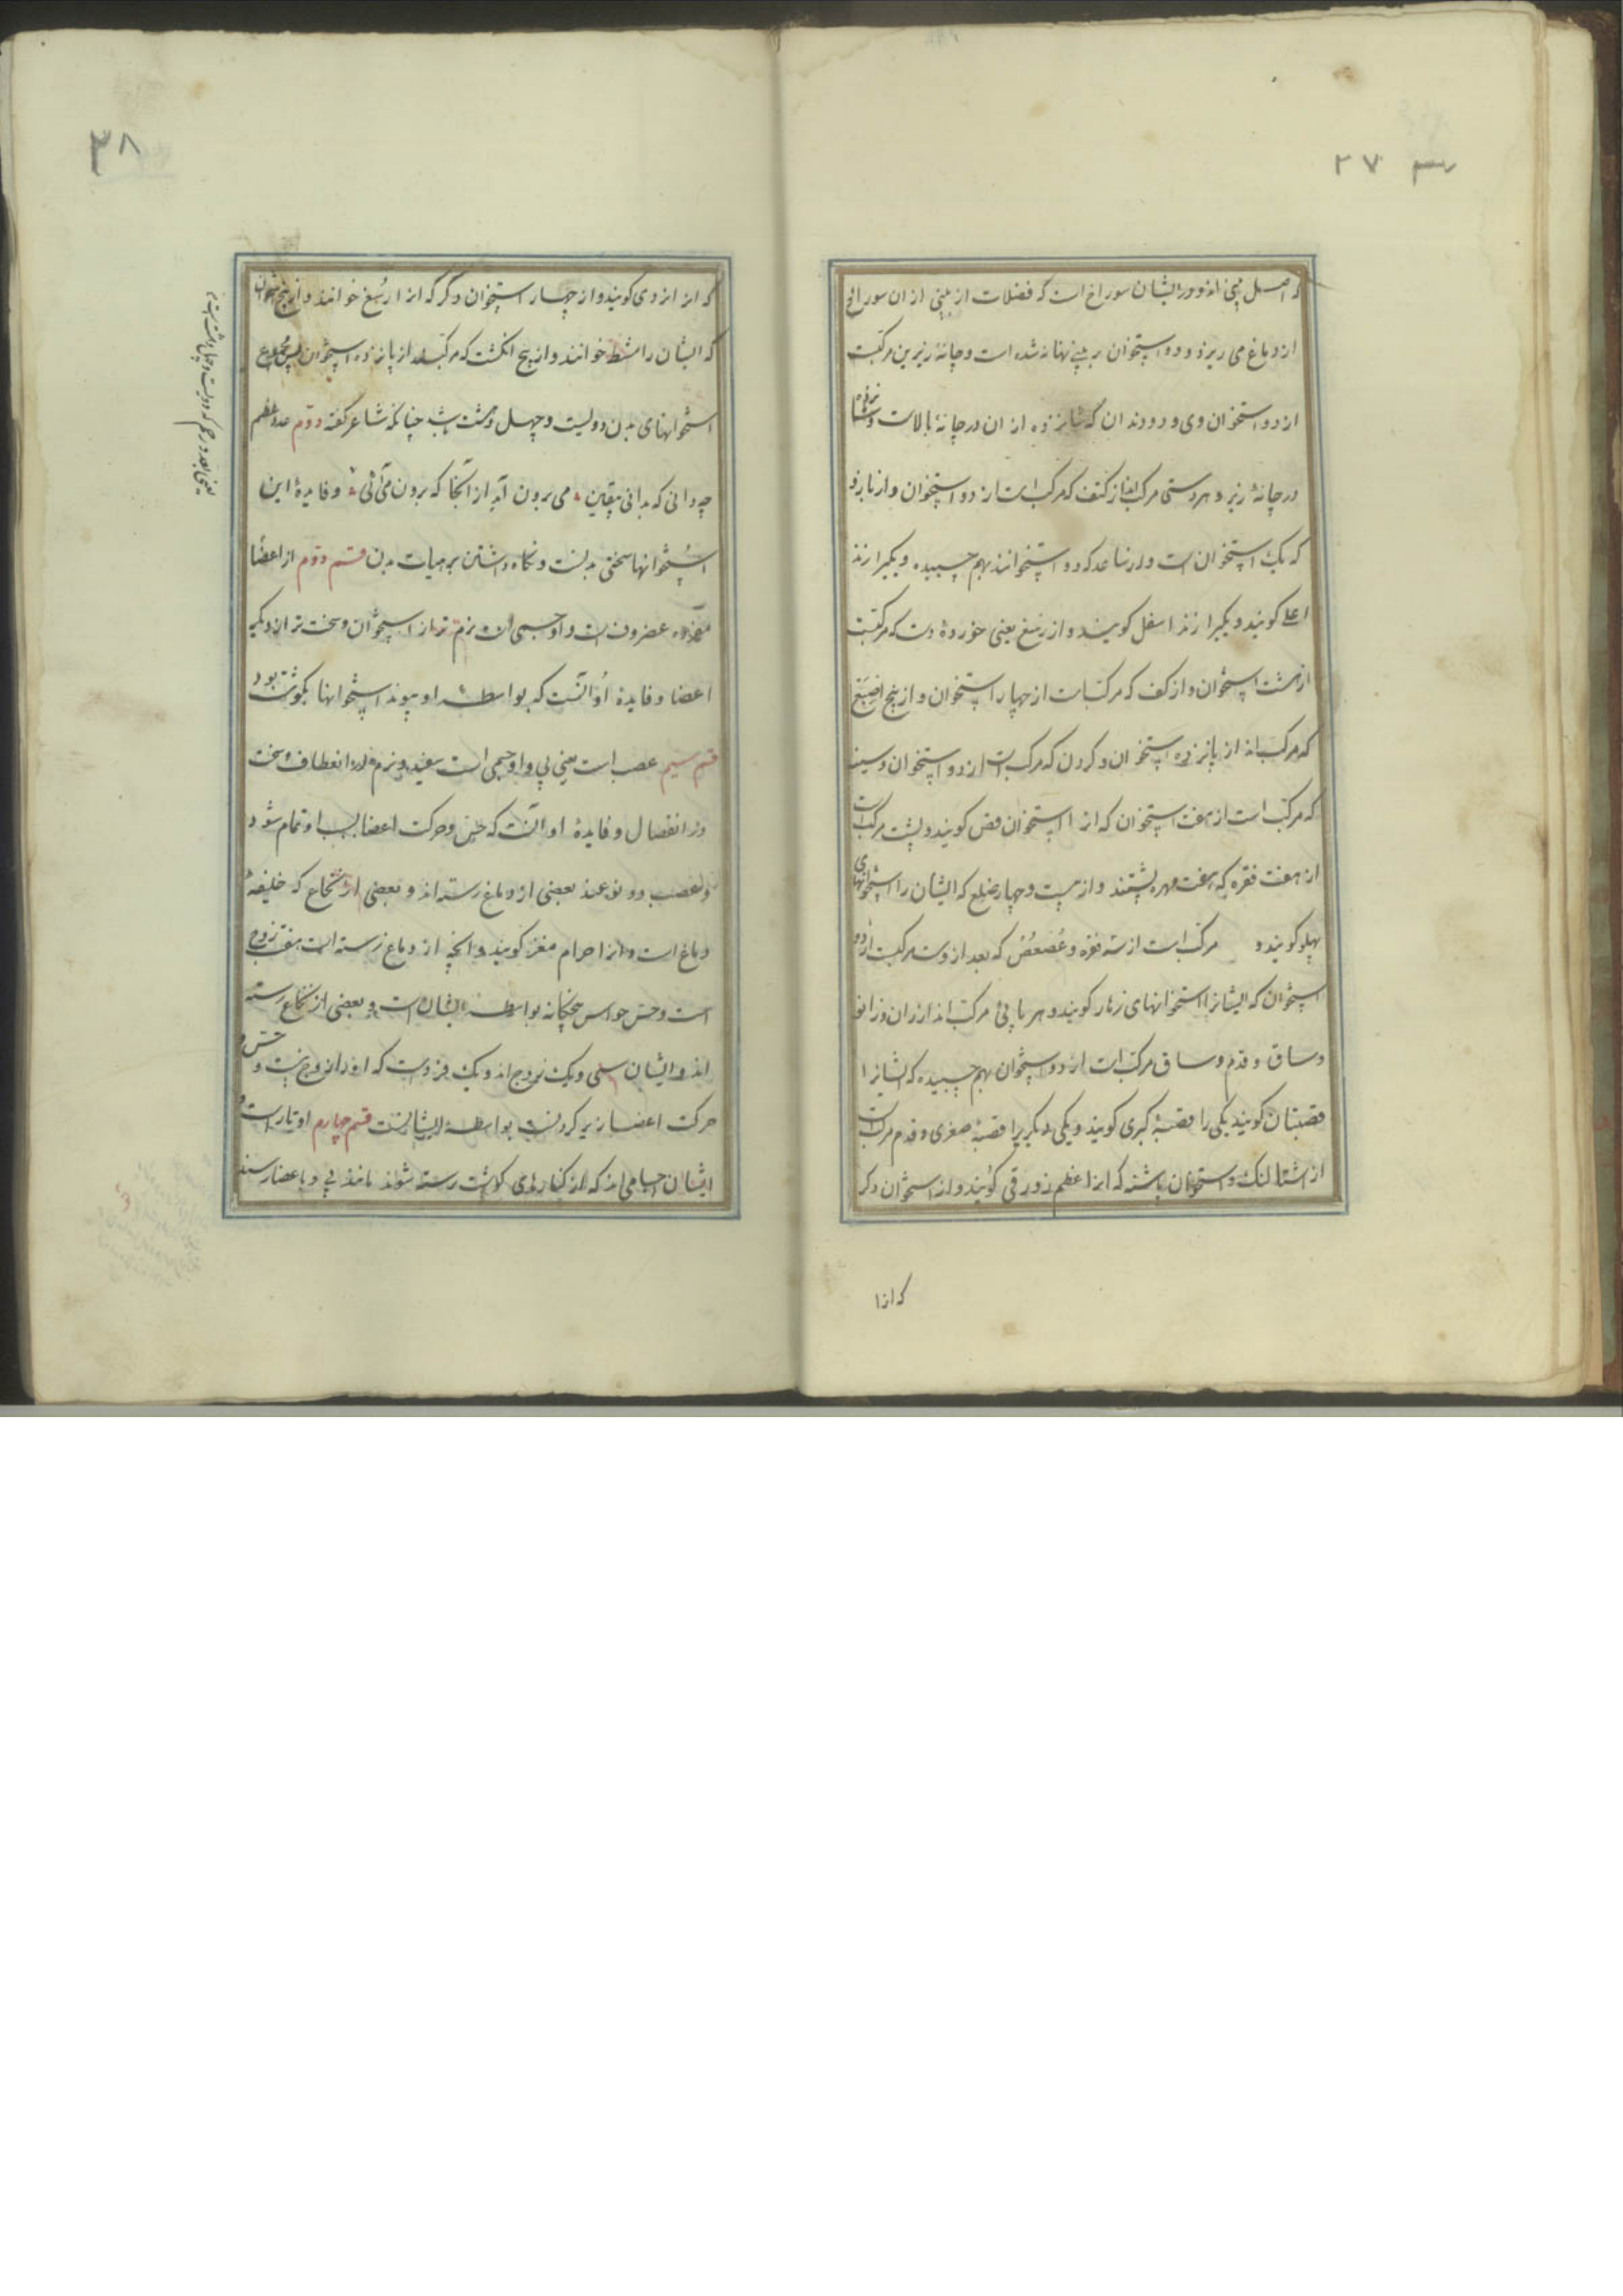 ۲۷
که اصل بینی اند و در ایشان سوراخ است که فضلات از بینی از ان سوراخ
از دماغ می ریزد و دو استخوان بر بینی نهانه شده است و چانهٔ زیرین مرکبست
از دو استخوان وی و دو دندان که شانزده از ان در چانهٔ بالاست و شانزده
در چانهٔ زیر و هر دستی مرکب اند از کتف که مرکب است از دو استخوان و از بازو
که یک استخوان است و از ساعد که دو استخوانند بهم چسبیده و یکیرا زند
اعلی کویند و یکیرا زند اسفل کویند و از رسغ یعنی خوردهٔ دست که مرکبست
از هشت استخوان و از کف که مرکب است از چهار استخوان و از پنج اصبع
که مرکب اند از پانزده استخوان و کردن که مرکب است از دو استخوان و سینه
که مرکب است از هفت استخوان که انرا استخوان قص کویند و پشت مرکب است
از هفت فقره که هفت مهره پشتند و از بیست و چهار ضلع که ایشان را استخوانهای
پهلو کویند و مرکب است از سه فقره و عُصعُص که بعد از وست مرکبست از دو
استخوان که ایشانرا استخوانهای زهار کویند و هر پائی مرکب اند از ران و زانو
و ساق و قدم و ساق مرکب است از دو استخوان بهم چسبیده که ایشانرا
قصبتان کویند یکی را قصبهٔ کبری کویند و یکی دیکریرا قصبهٔ صغری و قدم مرکب است
از شتالنک و استخوان پاشنه که انرا عظم زورقی کویند و از استخوان دکر
که انرا
۳۸
که انرا نردی کویند و از چهار استخوان دکر که انرا رُسغ خوانند و از پنج استخوان
که ایشان را مشط خوانند و از پنج انکشت که مرکبند از پانزده استخوان پس مجموع
استخوانهای بدن دویست و چهل و هشت باشد چنانکه شاعر کفته دوم عدد عظم
چه دانی که بدانی بیقین می برون آید از آنجا که برون می آئی و فایدهٔ این
استخوانها سختی بدنست و نکاه داشتن بر هیات بدن قسم دوم از اعضا
مفرده غضروف است و او جسمی است نرم تر از استخوان و سخت تر از دیکر
اعضا و فایدهٔ او آنست که بواسطهٔ او پیوند استخوانها بکوشت بود
قسم سیم عصب است یعنی پی و او جسمی است سفید و نرم در انعطاف و سخت
در انفصال و فایدهٔ او آنست که حس و حرکت اعضا بسبب او تمام شود
و عصب دو نوعند بعضی از دماغ رسته اند و بعضی از نخاع که خلیفهٔ
دماغ است و انرا حرام مغز کویند و انچه از دماغ رسته است هفت زوج
است و حس حواس پنجکانه بواسطهٔ ایشان است و بعضی از نخاع رسته
اند و ایشان سی و یک زوج اند و یک فردست که او را زوج نیست و حس و
حرکت اعضا زیر کردن بواسطهٔ ایشانست قسم چهارم اوتار است و
ایشان اجسامی اند که از کنارهای کوشت رسته شوند مانند پی و با عضا رسند